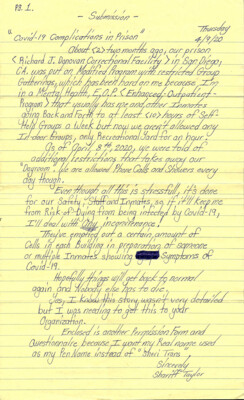 PG. 1.
- Submission -
Thursday
4/9/20
"Covid-19 Complications in Prison"
About (2) two months ago, our prison
(Richard J. Donovan Correctional Facility) in San Diego,
CA. was put on Modified Program with restricted Group
Gatherings, which has been hard on me because I'm
in a Mental Health, E.O.P. (Enhanced Outpatient
Program) that usually has me and other Inmates
going Back and Forth to at least (10) hours of Self-
Help Groups a Week but now we aren't allowed any
In-door Groups, only Recreational Yard for an hour!
As of April 8th, 2020, we were told of
additional restrictions that takes away our
"Dayroom". We are allowed Phone Calls and Showers every
day though.
Even though all this is stressful, it's done
for our Safety, Staff and Inmates, so if it'll keep me
from Risk of Dying from being infected by Covid-19,
I'll deal with any inconvenience!
They've emptied out a certain amount of
Cells in each Building in preparation of someone
or multiple Inmates showing Symptoms of
Covid-19.
Hopefully things will get back to normal
again and Nobody else has to die.
Yes, I know this story wasn't very detailed
but I was needing to get this to your
Organization.
Enclosed is another Permission Form and
Questionnaire because I want my Real name used
as my Pen Name instead of
Sincerely
Sheriff Taylor